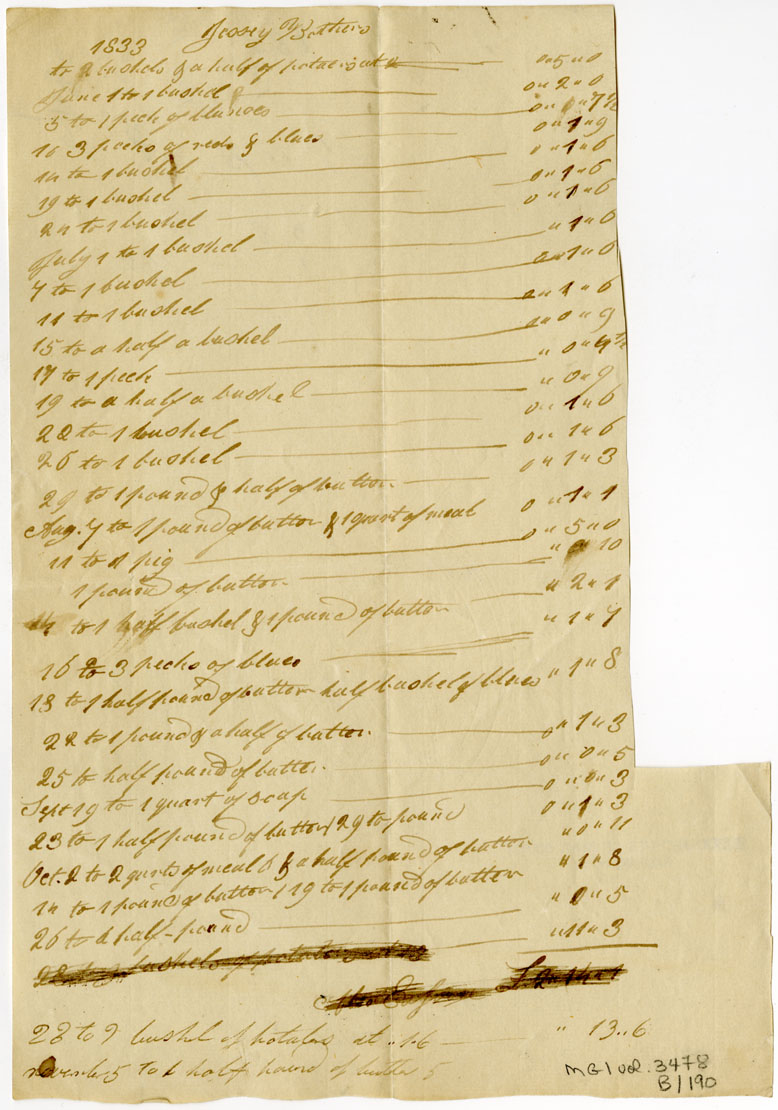 1833 Brothers
to 2 bushels & a half of potatoes at 2 0 " 5 " 0
June 1 to 1 bushel 0 " 2 " 0
5 to 1 peck of blunoes 0 " 0 " 7½
10 3 pecks of reds & blues 0 " 1 " 9
14 to 1 bushel 0 " 1 " 6
19 to 1 bushel 0 " 1 " 6
24 to 1 bushel 0 " 1 " 6
July 1 to 1 bushel " 1 " 6
7 to 1 bushel 0 " 1 " 6
11 to 1 bushel 0 " 1 " 6
15 to a half a bushel 0 " 0 " 9
17 to 1 peck " 0 " 4½
19 to a half a bushel " 0 " 9
22 to 1 bushel 0 " 1 " 6
26 to 1 bushel 0 " 1 " 6
29 to 1 pound & half of butter 0 " 1 " 3
Aug. 7 to 1 pound of butter & 1 quart of meal 0 " 1 " 1
11 to 1 pig 0 " 5 " 0
1 pound of butter " 10
to 1 half bushel & 1 pound of butter " 2 " 1
16 to 3 pecks of blues " 1 " 7
18 to 1 half pound of butter half bushel of blues " 1 " 8
22 to 1 pound & a half of butter 0 " 1 " 3
25 to half pound of butter 0 " 0 " 5
Sept 19 to 1 quart of soap 0 " 0 " 3
23 to 1 half pound of butter / 29 to pound 0 " 1 " 3
Oct. 2 to 2 quarts of meal & a half pound of butter " 0 " 11
14 to 1 pound of butter / 19 to 1 pound of butter " 1 " 8
26 to a half-pound " 0 " 5
bushels of potatoes " 11 " 3
28 to 9 bushel of potatoes at "1.6 " 13..6
november 5 to 1 half pound of butter 5
MG1 vol. 3478
B/190